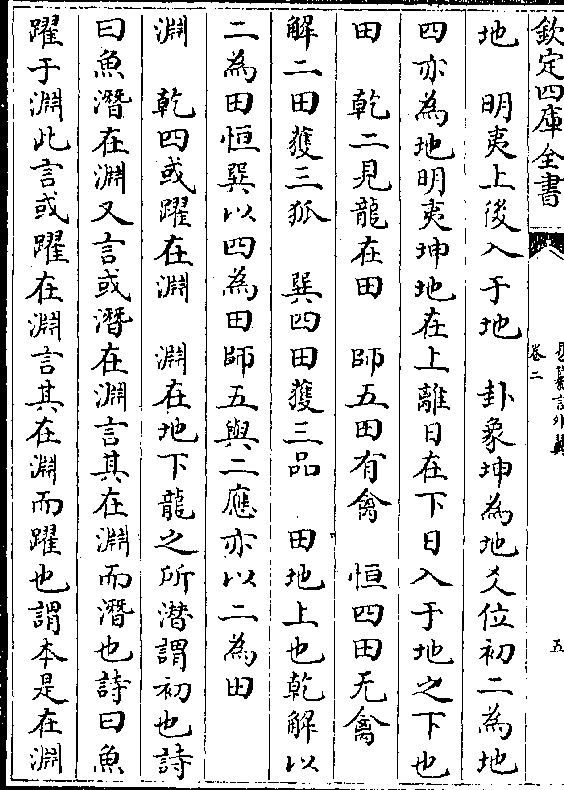 欽定四庫全書
卷二
五
地　明夷上後入于地　卦象坤為地爻位初二為地
四亦為地明夷坤地在上離日在下日入于地之下也
田　乾二見龍在田　師五田有禽　恒四田无禽
解二田獲三狐　巽四田獲三品　田地上也乾解以
二為田恒巽以四為田師五與二應亦以二為田
淵　乾四或躍在淵　淵在地下龍之所潛謂初也詩
曰魚潛在淵又言或潛在淵言其在淵而潛也詩曰魚
躍于淵此言或躍在淵言其在淵而躍也謂本是在淵